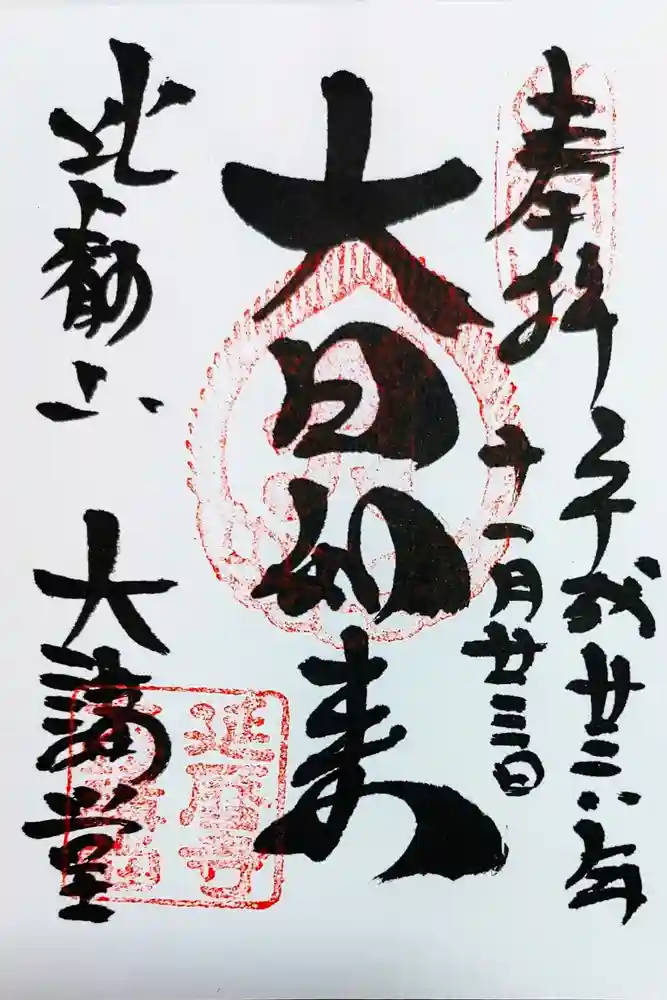 奉拝
平成廿三年
十一月廿三日
大日如来
比叡山 大講堂
延暦寺